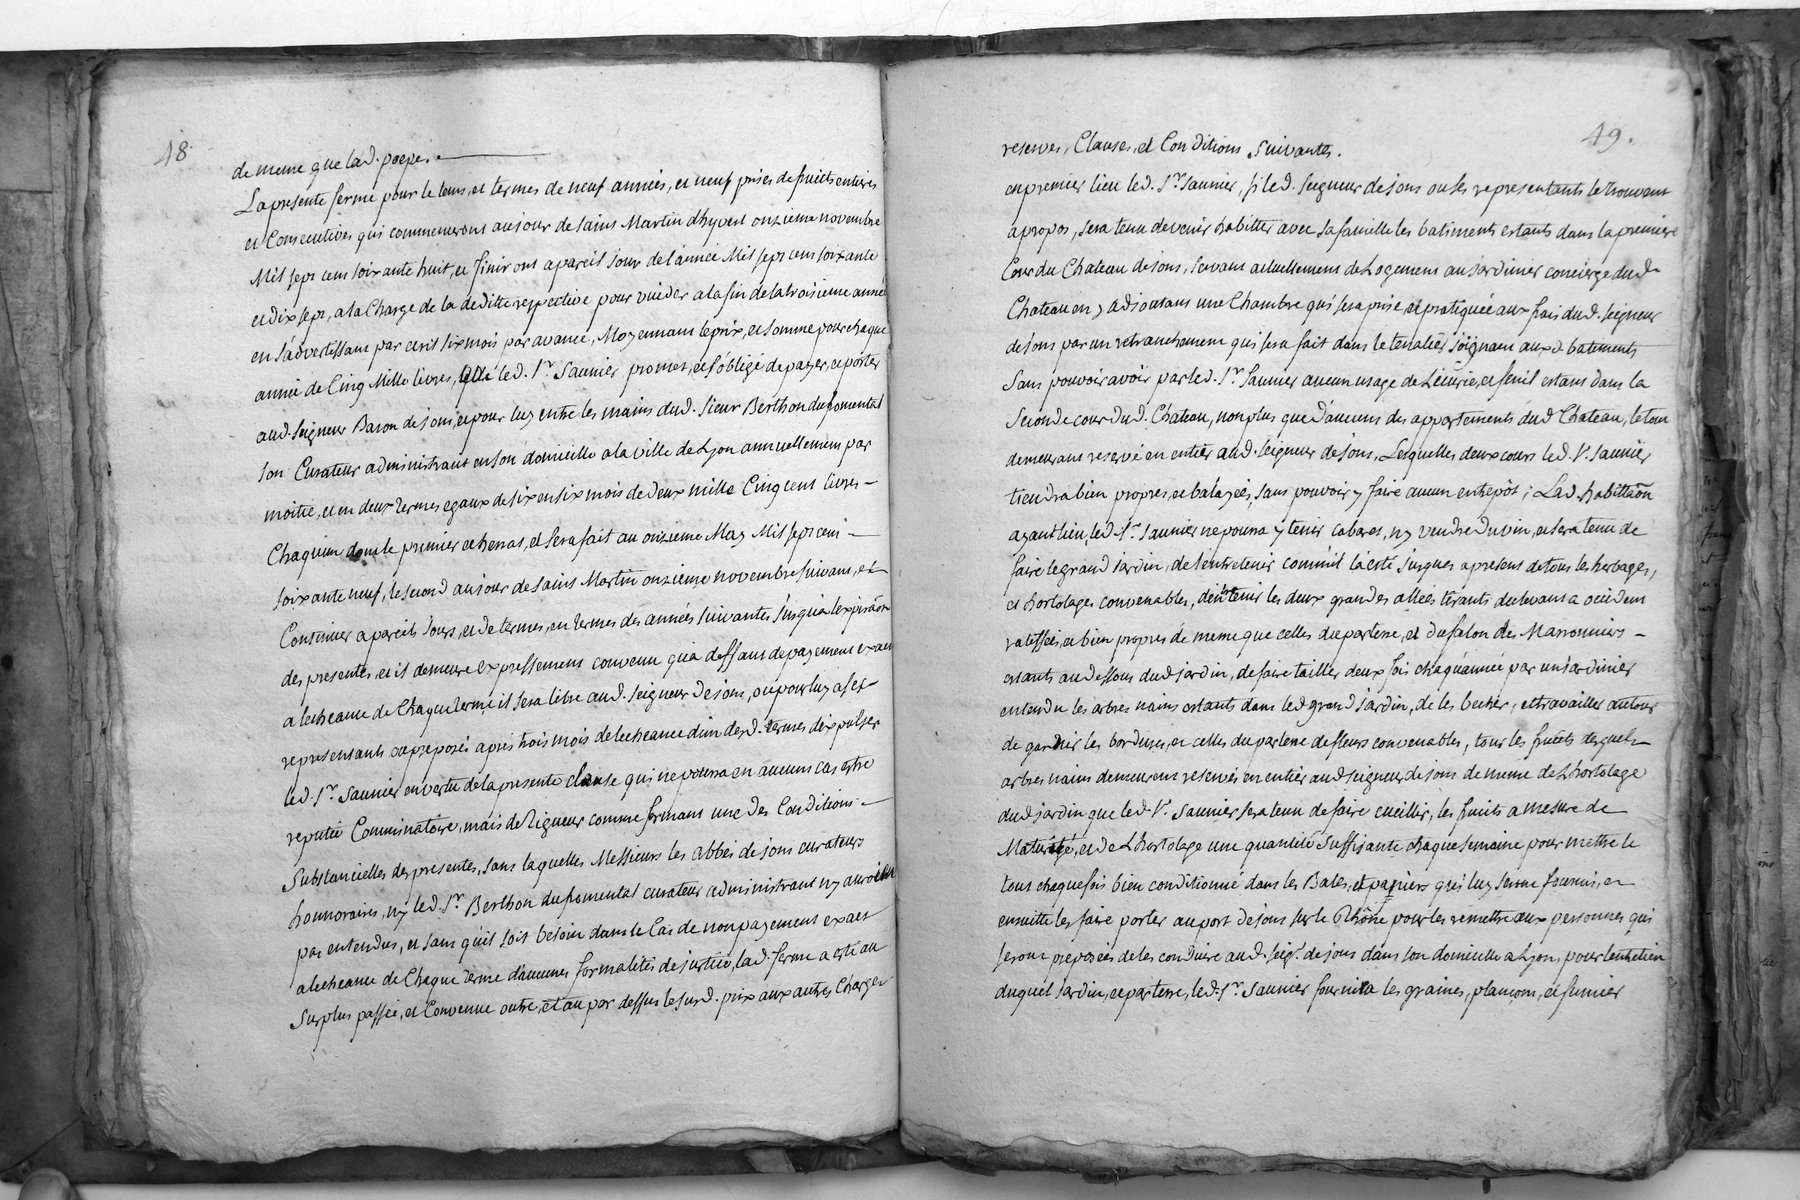 48
de meme que lad. poepe.
La presente ferme pour le tems, et termes de neuf années, et neuf prises de fruits entieres
et Consecutives qui commenceront au jour de saint Martin d'hyvert onzieme novembre
Mil sept cent soixante huit, et finiront a pareil jour de l'année Mil sept cent soixante
et dix sept, a la Charge de la deditte respective pour vuider a la fin de la troisieme année
en s'advertissant par ecrit six mois par avance, Moyennant le prix, et somme pour chaque
année de Cinq Mille livres, que led. Sr. Saunier promet, et s'oblige de payer, et porter
aud. Seigneur Baron de jons, et pour luy entre les mains dud. sieur Berthon du fomental
son Curateur administrant en son domicille a la ville de Lyon annuellement par
moitié, et en deux termes egaux de six en six mois de deux mille Cinq cent livres
Chaquun dont le premier echerra, et sera fait au onzieme May Mil sept cent
soixante neuf, le second au jour de saint Martin onzieme novembre suivant, et
Continuer a pareils jours, et de termes, en termes des années suivantes jusqu'a l'expiraôn
des presentes, et il demeure expressement convenu qu'a deffaut de payement exact
a l'echeance de Chaque terme il sera libre aud. seigneur de jons, ou pour luy a ses
representants ou preposés apres trois mois de l'echeance d'un desd. termes d'expulser
led. Sr. Saunier en vertu de la presente clause qui ne pourra en aucuns cas estre
reputée Comminatoire, mais de rigueur comme formant une des Conditions
Substancielles des presentes, sans laquelle Messieurs les abbés de jons curateurs
honnoraires, ny led. Sr. Berthon du fomental curateur administrant n'y auroient
pas entendus, et sans qu'il soit besoin dans le Cas de non payement exact
a l'echeance de Chaque terme d'aucunes formalités de justice, lad. ferme a esté au
surplus passée, et Convenue outre, et au par dessus le susd. prix aux autres Charges
49.
reserves, Clauses, et Conditions suivantes.
en premier lieu led. Sr. Saunier, si led. seigneur de jons ou ses representants le trouvent
a propos, sera tenu de venir habitter avec sa famille les batiments estants dans la premiere
Cour du Chateau de jons, servant actuellement de Logement au jardinier concierge dud.
Chateau en y adjoutant une Chambre qui sera prise et pratiquée aux frais dud. seigneur
de jons par un retranchement qui sera fait dans le tenalier joignant auxd. batiments
sans pouvoir avoir par led. Sr. Saunier aucun usage de L'ecurie, et fenil estant dans la
seconde cour dud. Chateau, non plus que d'aucuns des appartements dud. Chateau, le tout
demeurant reservé en entier aud. seigneur de jons, Lesquelles deux cours led. Sr. Saunier
tiendra bien propres, et balayées, sans pouvoir y faire aucun entrepôt; Lad. habittaôn
ayant lieu, led. Sr. Saunier ne pourra y tenir cabaret, ny vendre du vin, et sera tenu de
faire le grand jardin, de l'entretenir comm'il l'a esté jusques apresent de tous les herbages,
et hortolages convenables, d'entretenir les deux grandes allées tirants de levant a occident
ratissées, et bien propres de meme que celles du parterre, et du salon des Marronniers
estants au dessous dud. jardin, de faire tailler deux fois chaqu'année par un jardinier
entendu les arbres nains estants dans led. grand jardin, de les becher, et travailler autour
de garnir les bordures, et celles du parterre de fleurs convenables, tous les fruits desquels
arbres nains demeurent reservés en entier aud. seigneur de jons de meme de L'hortolage
dud. jardin que led. Sr. Saunier sera tenu de faire cueillir, les fruits a mesure de
Maturité, et de L'hortolage une quantité suffisante chaque semaine pour mettre le
tout chaque fois bien conditionné dans les Bates, et paniers qui luy seront fournis, et
ensuitte les faire porter au port de jons sur le Rhône pour les remettre aux personnes qui
seront preposées de les conduire aud. seigr. de jons dans son domicille a Lyon, pour l'entretien
duquel jardin, et parterre, led. Sr. Saunier fournira les graines, plançons, et fumier